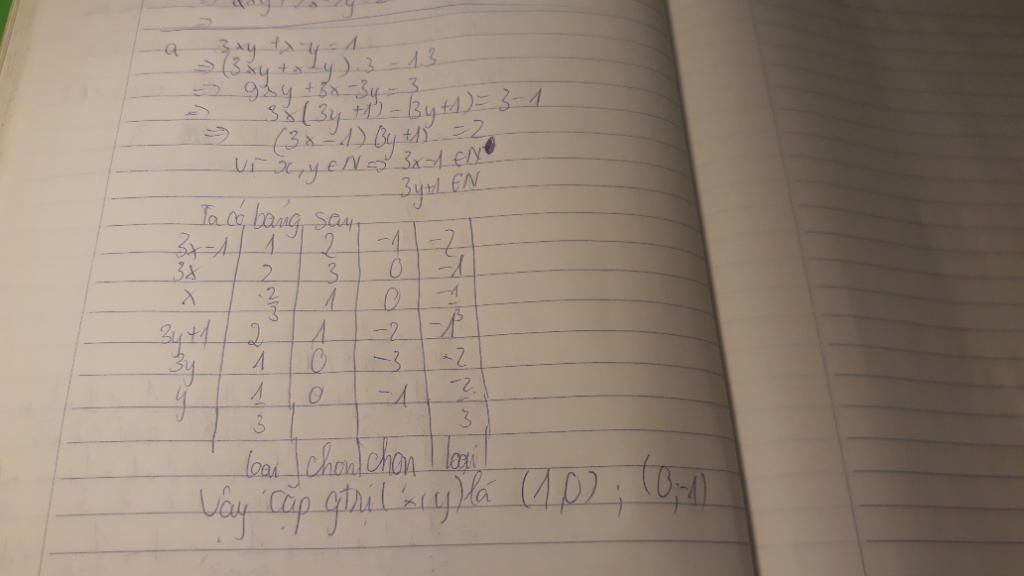 a 3xy + x - y = 1
=> (3xy + x - y) . 3 = 1 3
=> 9xy + 3x - 3y = 3
=> 3x (3y + 1) - (3y + 1) = 3 - 1
=> (3x - 1) (3y + 1) = 2
Vì x, y ∈ N => 3x - 1 ∈ N
3y + 1 ∈ N
Ta có bảng sau
3x - 1 1 2 -1 -2
3x 2 3 0 -1
x 2/3 1 0 -1/3
3y + 1 2 1 -2 -1
3y 1 0 -3 -2
y 1/3 0 -1 -2/3
loại chọn chọn loại
Vậy cặp gtrị (x, y) là (1, 0) ; (0; -1)